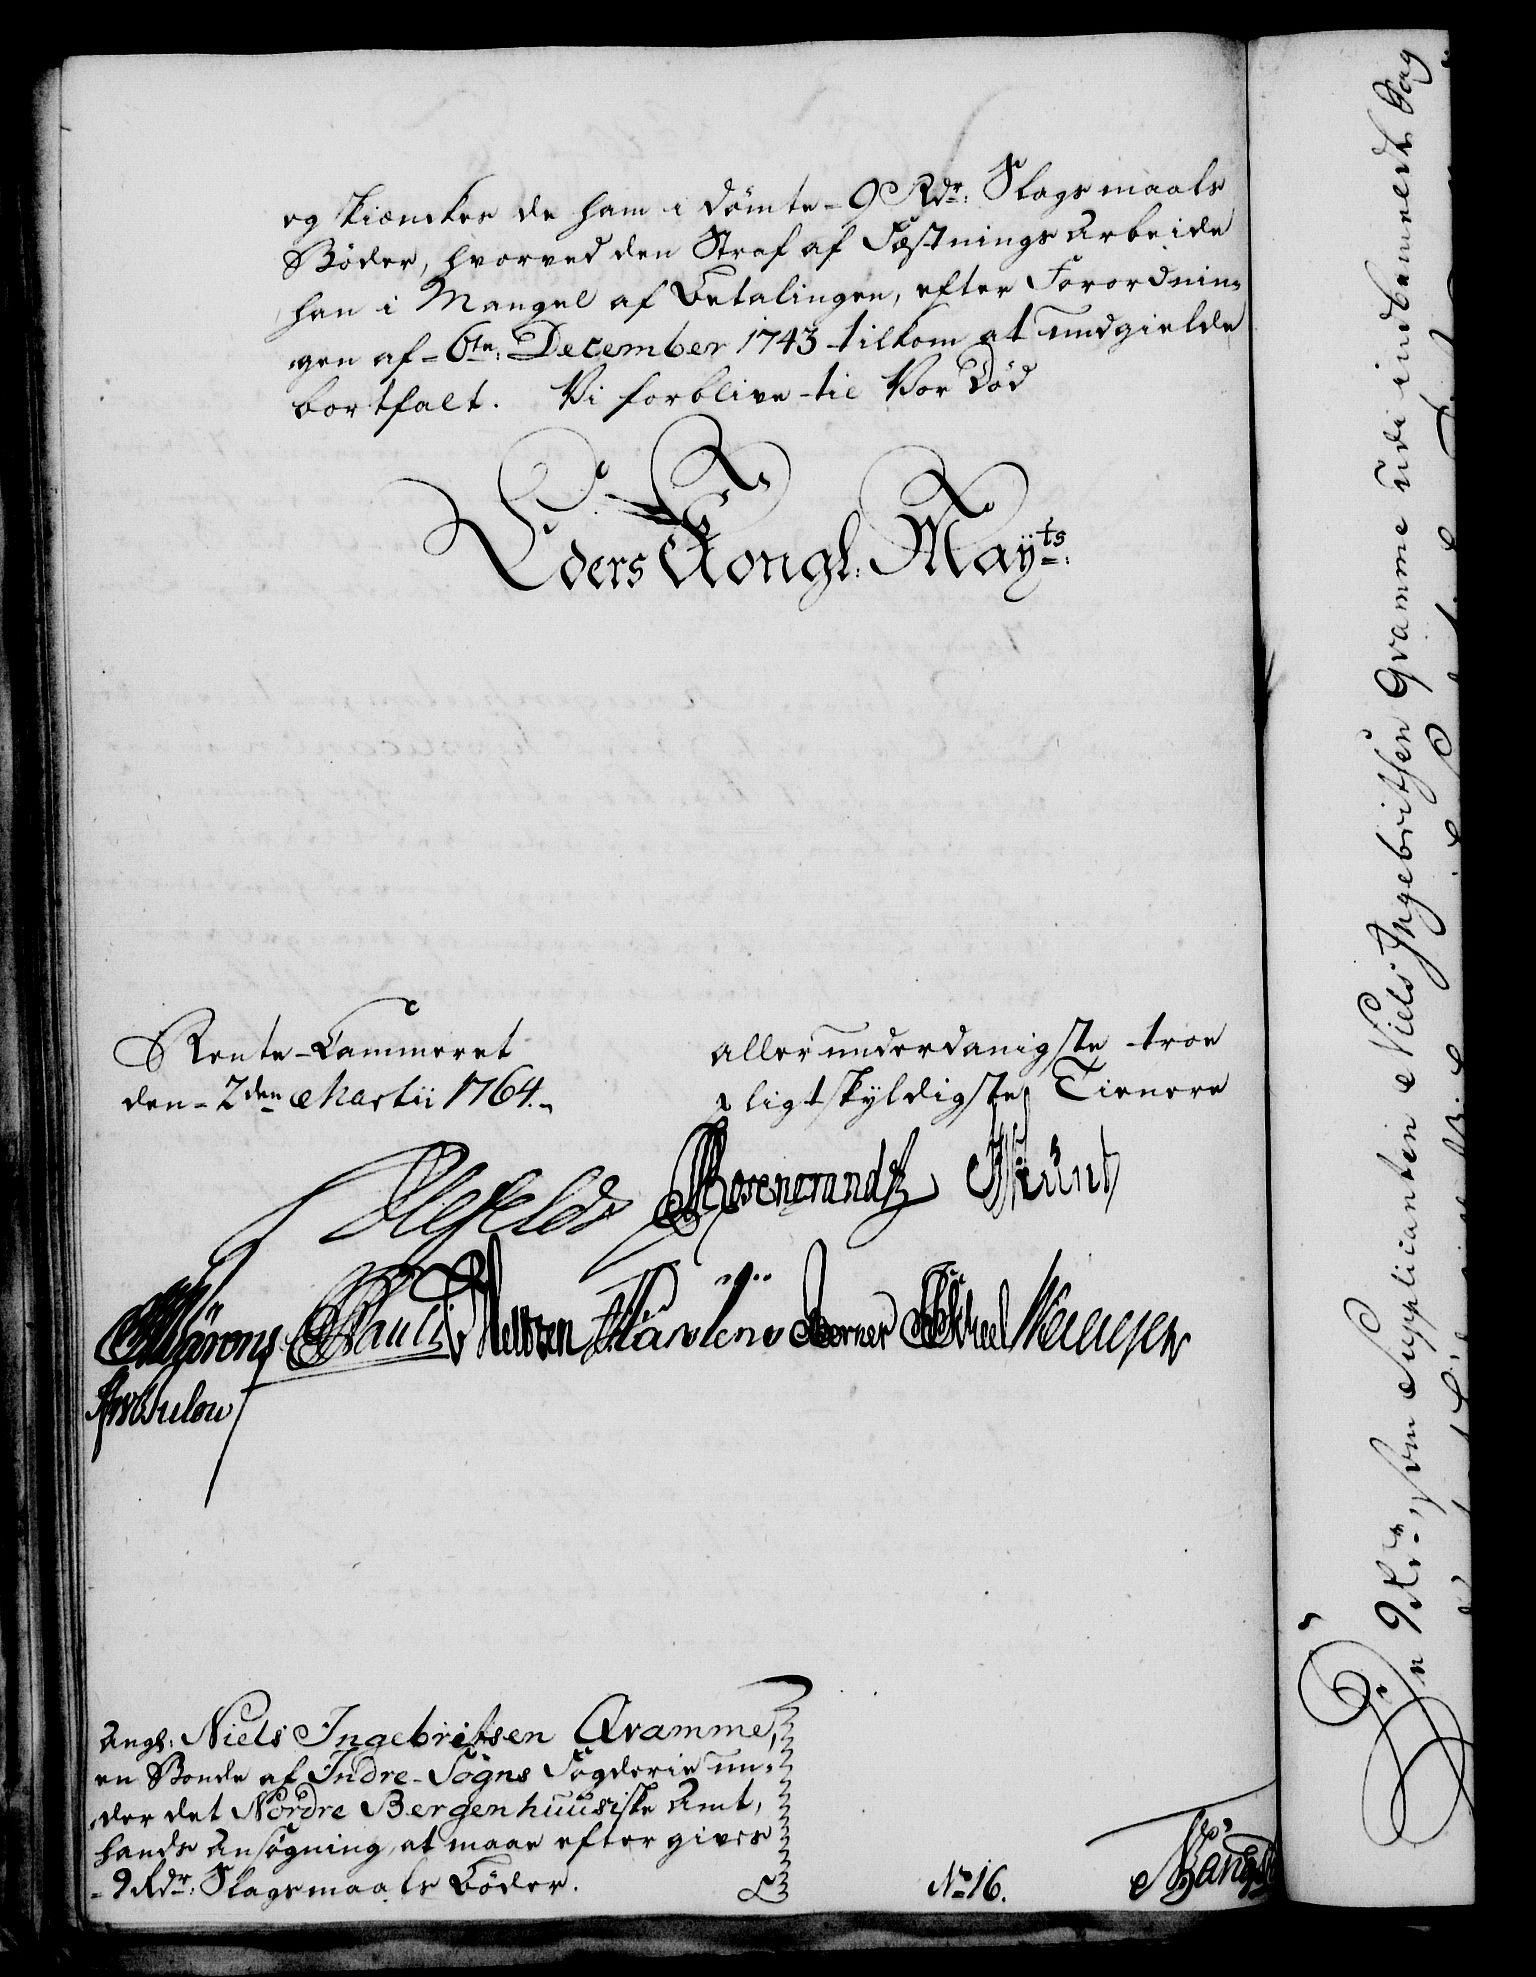 og skiencker de ham i dömte - 9 Rdr: Slagsmaals
Böder, hvorved den Straf af Fæstnings Arbeide
han i Mangel af Betalingen, efter Forordnin=
gen af - 6te: December 1743 tilkom at undgielde
bortfalt. Vi forblive til Vor Död
Eders Kongl: Mayts:
Rente-Cammeret
den - 2den Martii 1764.
allerunderdanigste troe
pligtskyldigste Tienere
Ahlefeldt Rosencrandtz
Pauli
Neltzen Kärsteno Berner
Angl: Niels Ingebritsen Qvamme,
en Bonde af Indre-Sögns Fogderie un=
der det Nordre Bergenhuusiske Amt,
hands Ansögning, at maae eftergives
- 9 Rdr: Slagsmaals Böder.
No. 16.
9 Rdr, som Supplicanten Niels Ingebritsen Qvamme udi indbemeldte Sag